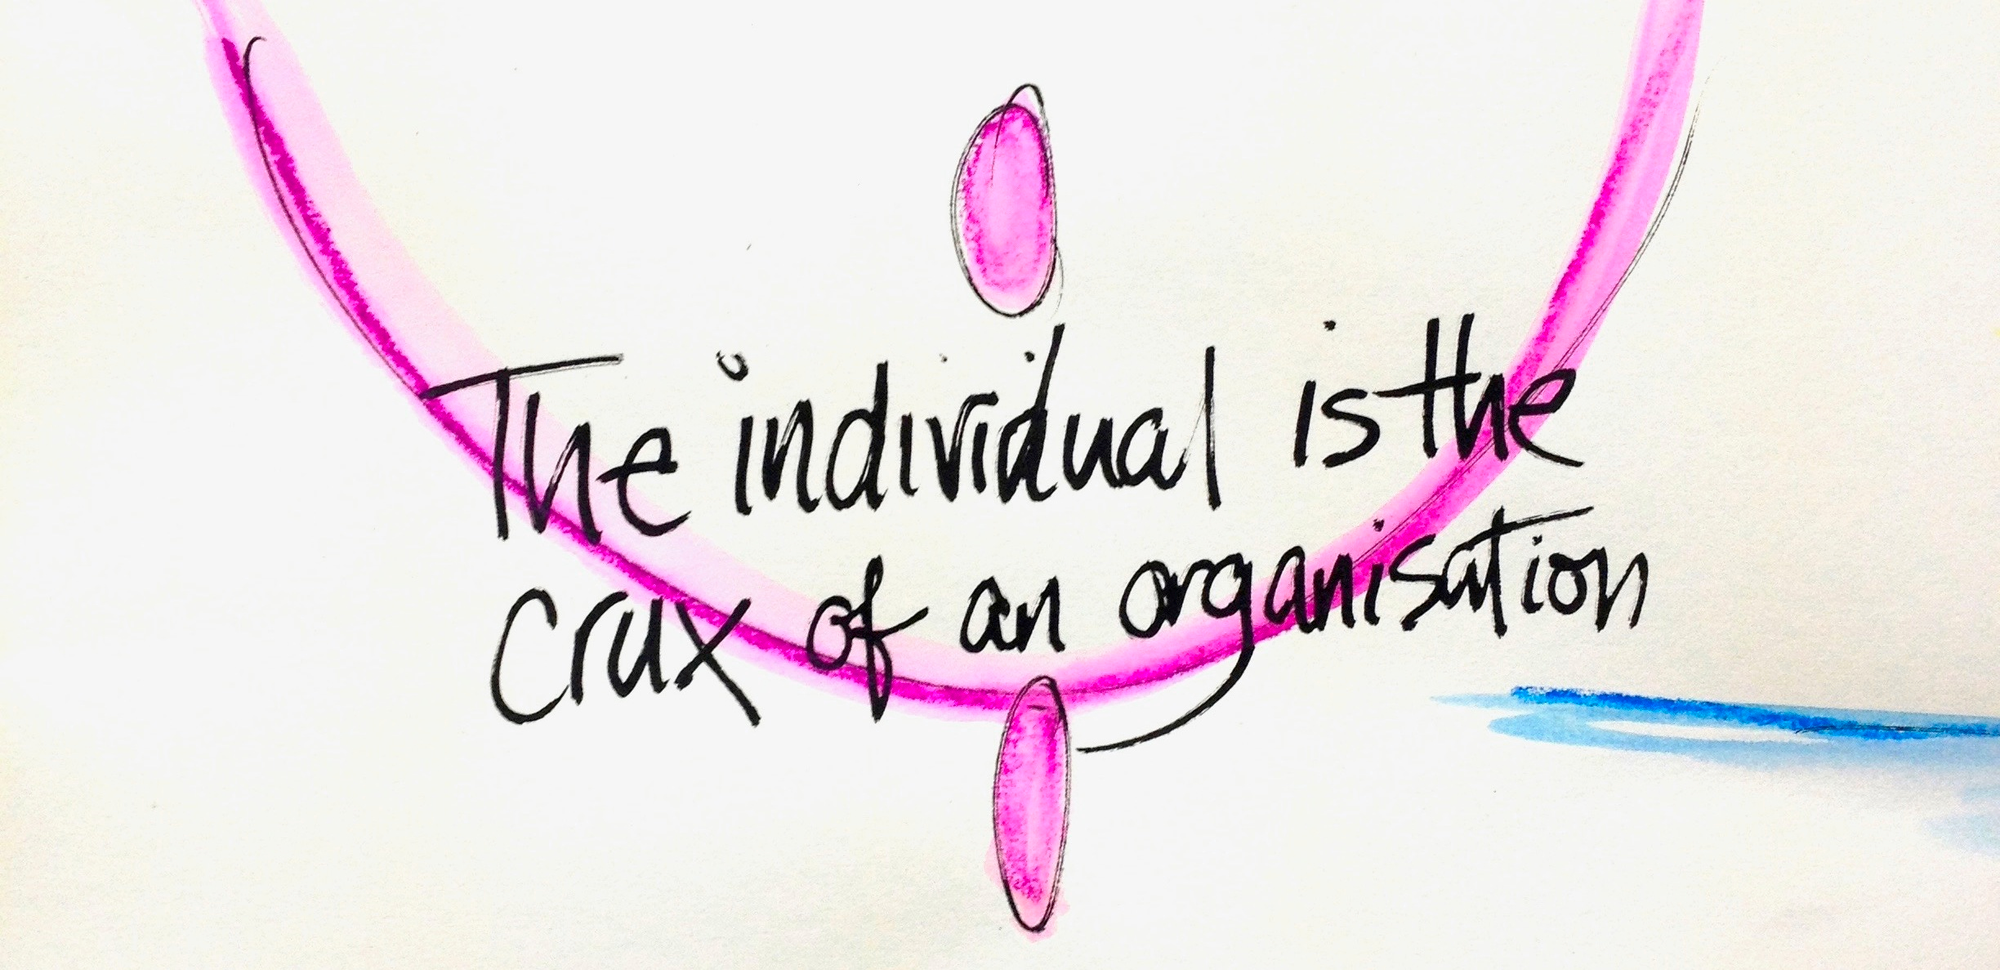 The individual is the
crux of an organisation